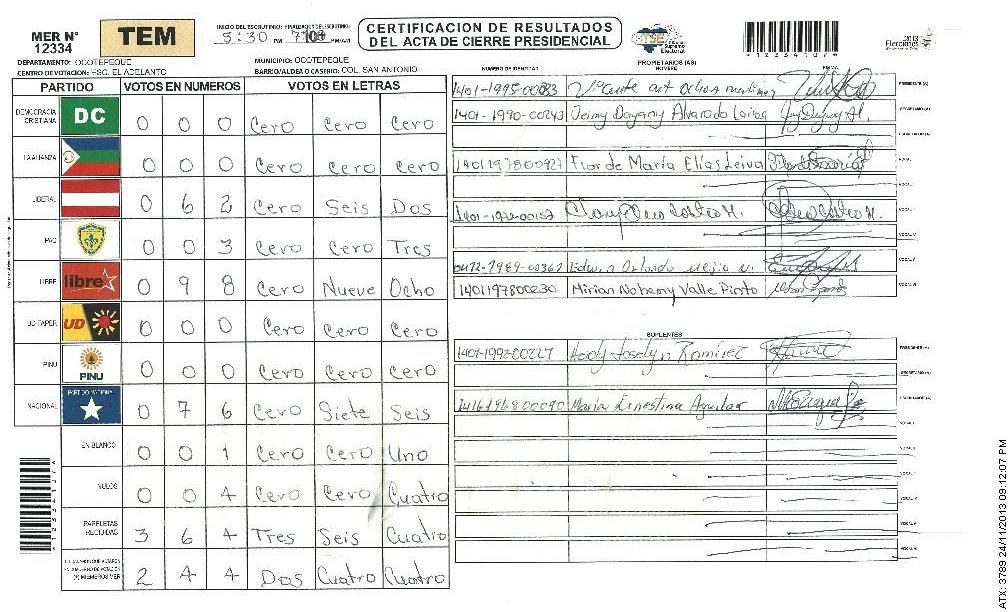 MER N° 12334
TEM
INICIO DEL ESCRUTINIO: 5:30 PM
FINALIZACION DEL ESCRUTINIO: PM/AM
CERTIFICACION DE RESULTADOS
DEL ACTA DE CIERRE PRESIDENCIAL
TSE
Tribunal Supremo Electoral
1 2 3 3 4 1 0 7 4
2013
Elecciones
DEPARTAMENTO: OCOTEPEQUE
MUNICIPIO: OCOTEPEQUE
CENTRO DE VOTACION: ESC. EL ADELANTO
BARRIO/ALDEA O CASERIO: COL. SAN ANTONIO
NUMERO DE IDENTIDAD
PROPIETARIOS (AS)
NOMBRE
FIRMA
PARTIDO VOTOS EN NUMEROS VOTOS EN LETRAS
DEMOCRACIA CRISTIANA DC 0 0 0 Cero Cero Cero
LA ALIANZA 0 0 0 Cero Cero Cero
LIBERAL 0 6 2 Cero Seis Dos
PAC 0 0 3 Cero Cero Tres
LIBRE libre 0 9 8 Cero Nueve Ocho
UD-FAPER UD 0 0 0 Cero Cero Cero
PINU PINU 0 0 0 Cero Cero Cero
NACIONAL PARTIDO NACIONAL 0 7 6 Cero Siete Seis
EN BLANCO 0 0 1 Cero Cero Uno
NULOS 0 0 4 Cero Cero Cuatro
PAPELETAS RECIBIDAS 3 6 4 Tres Seis Cuatro
(+) MIEMBROS MER 2 4 4 Dos Cuatro Cuatro
1401-1995-00083 Vicente ant Ochoa martinez PRESIDENTE (A)
1401-1990-00243 Jeimy Dayany Alvarado Larios SECRETARIO (A)
ESCRUTADOR (A)
1401197800927 Flor de María Elías Leiva VOCAL I
VOCAL II
VOCAL III
VOCAL IV
VOCAL V
Edwin Orlando Mejia N.
1401197800230 Mirian Nohemy Valle Pinto VOCAL VI
SUPLENTES
1401-1992-00227 Heidy Joselyn Ramirez PRESIDENTE (A)
SECRETARIO (A)
1416196800090 Maria Ernestina Aguilar ESCRUTADOR (A)
VOCAL I
VOCAL II
VOCAL III
VOCAL IV
VOCAL V
VOCAL VI
ATX: 3789 24/11/2013 09:12:07 PM